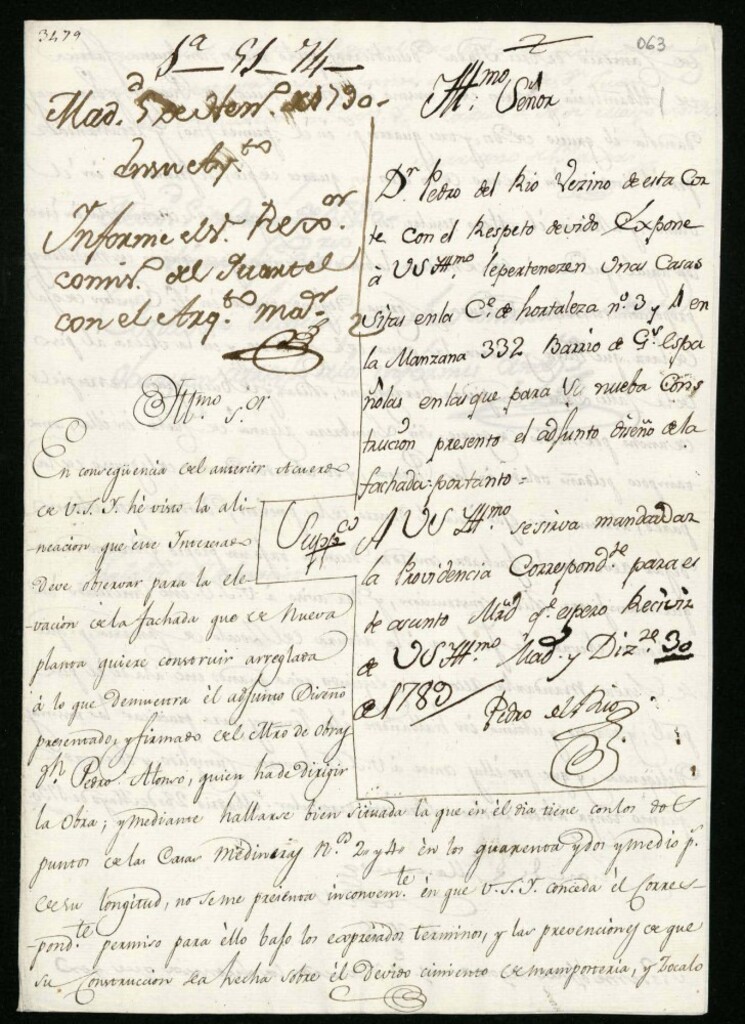 3479
063
1ª 51 74
Mad. 5 de Hen.º de 1790
En su Ay.to
Informe el S.r Rexo.or
comis.º del Quartel
con el Arq.to mad.r
Ill.mo Señor
D.n Pedro del Rio Vezino de esta Cor
te con el Respeto devido Expone
â VS Ill.mo le pertenezen Unas Casas
sitas en la C.e de hortaleza n.º 3 y 4 en
la Manzana 332 Barrio de G.s Espa
ñolas en las que para su nueba Cons
trucion presento el adjunto diseño de la
fachada portanto=
Supp.co
A VS Ill.mo se sirva mandar dar
la Providencia Correspond.te para es
te asunto Mrd q.e espero Recivir
de VS Ill.mo Mad. y Diz.re 30
de 1789
Pedro del Rio
Ill.mo S.or
En conseqüencia del anterior Acuerdo
de V.S.Y. hé visto la ali-
neacion que este Interesado
deve observar para la ele-
vacion de la fachada que de Nueva
planta quiere construir arreglada
â lo que demuestra êl adjunto Diseño
presentado, y firmado del Mtro de Obras
D.n Pedro Alonso, quien ha de dirigir
la Obra; y mediante hallarse bien situada la que ên êl dia tiene con los dos
puntos de las Casas Medineras N.os 2 y 4 en los quarenta y dos y medio p.s
de su longitud, no se me presenta inconvem.te ên que V.S.Y. conceda êl Corres-
pond.te permiso para êllo bajo los expresados terminos, y las prevenciones de que
su Construccion sea hecha sobre êl Devido cimiento de mamposteria, y Zocalo